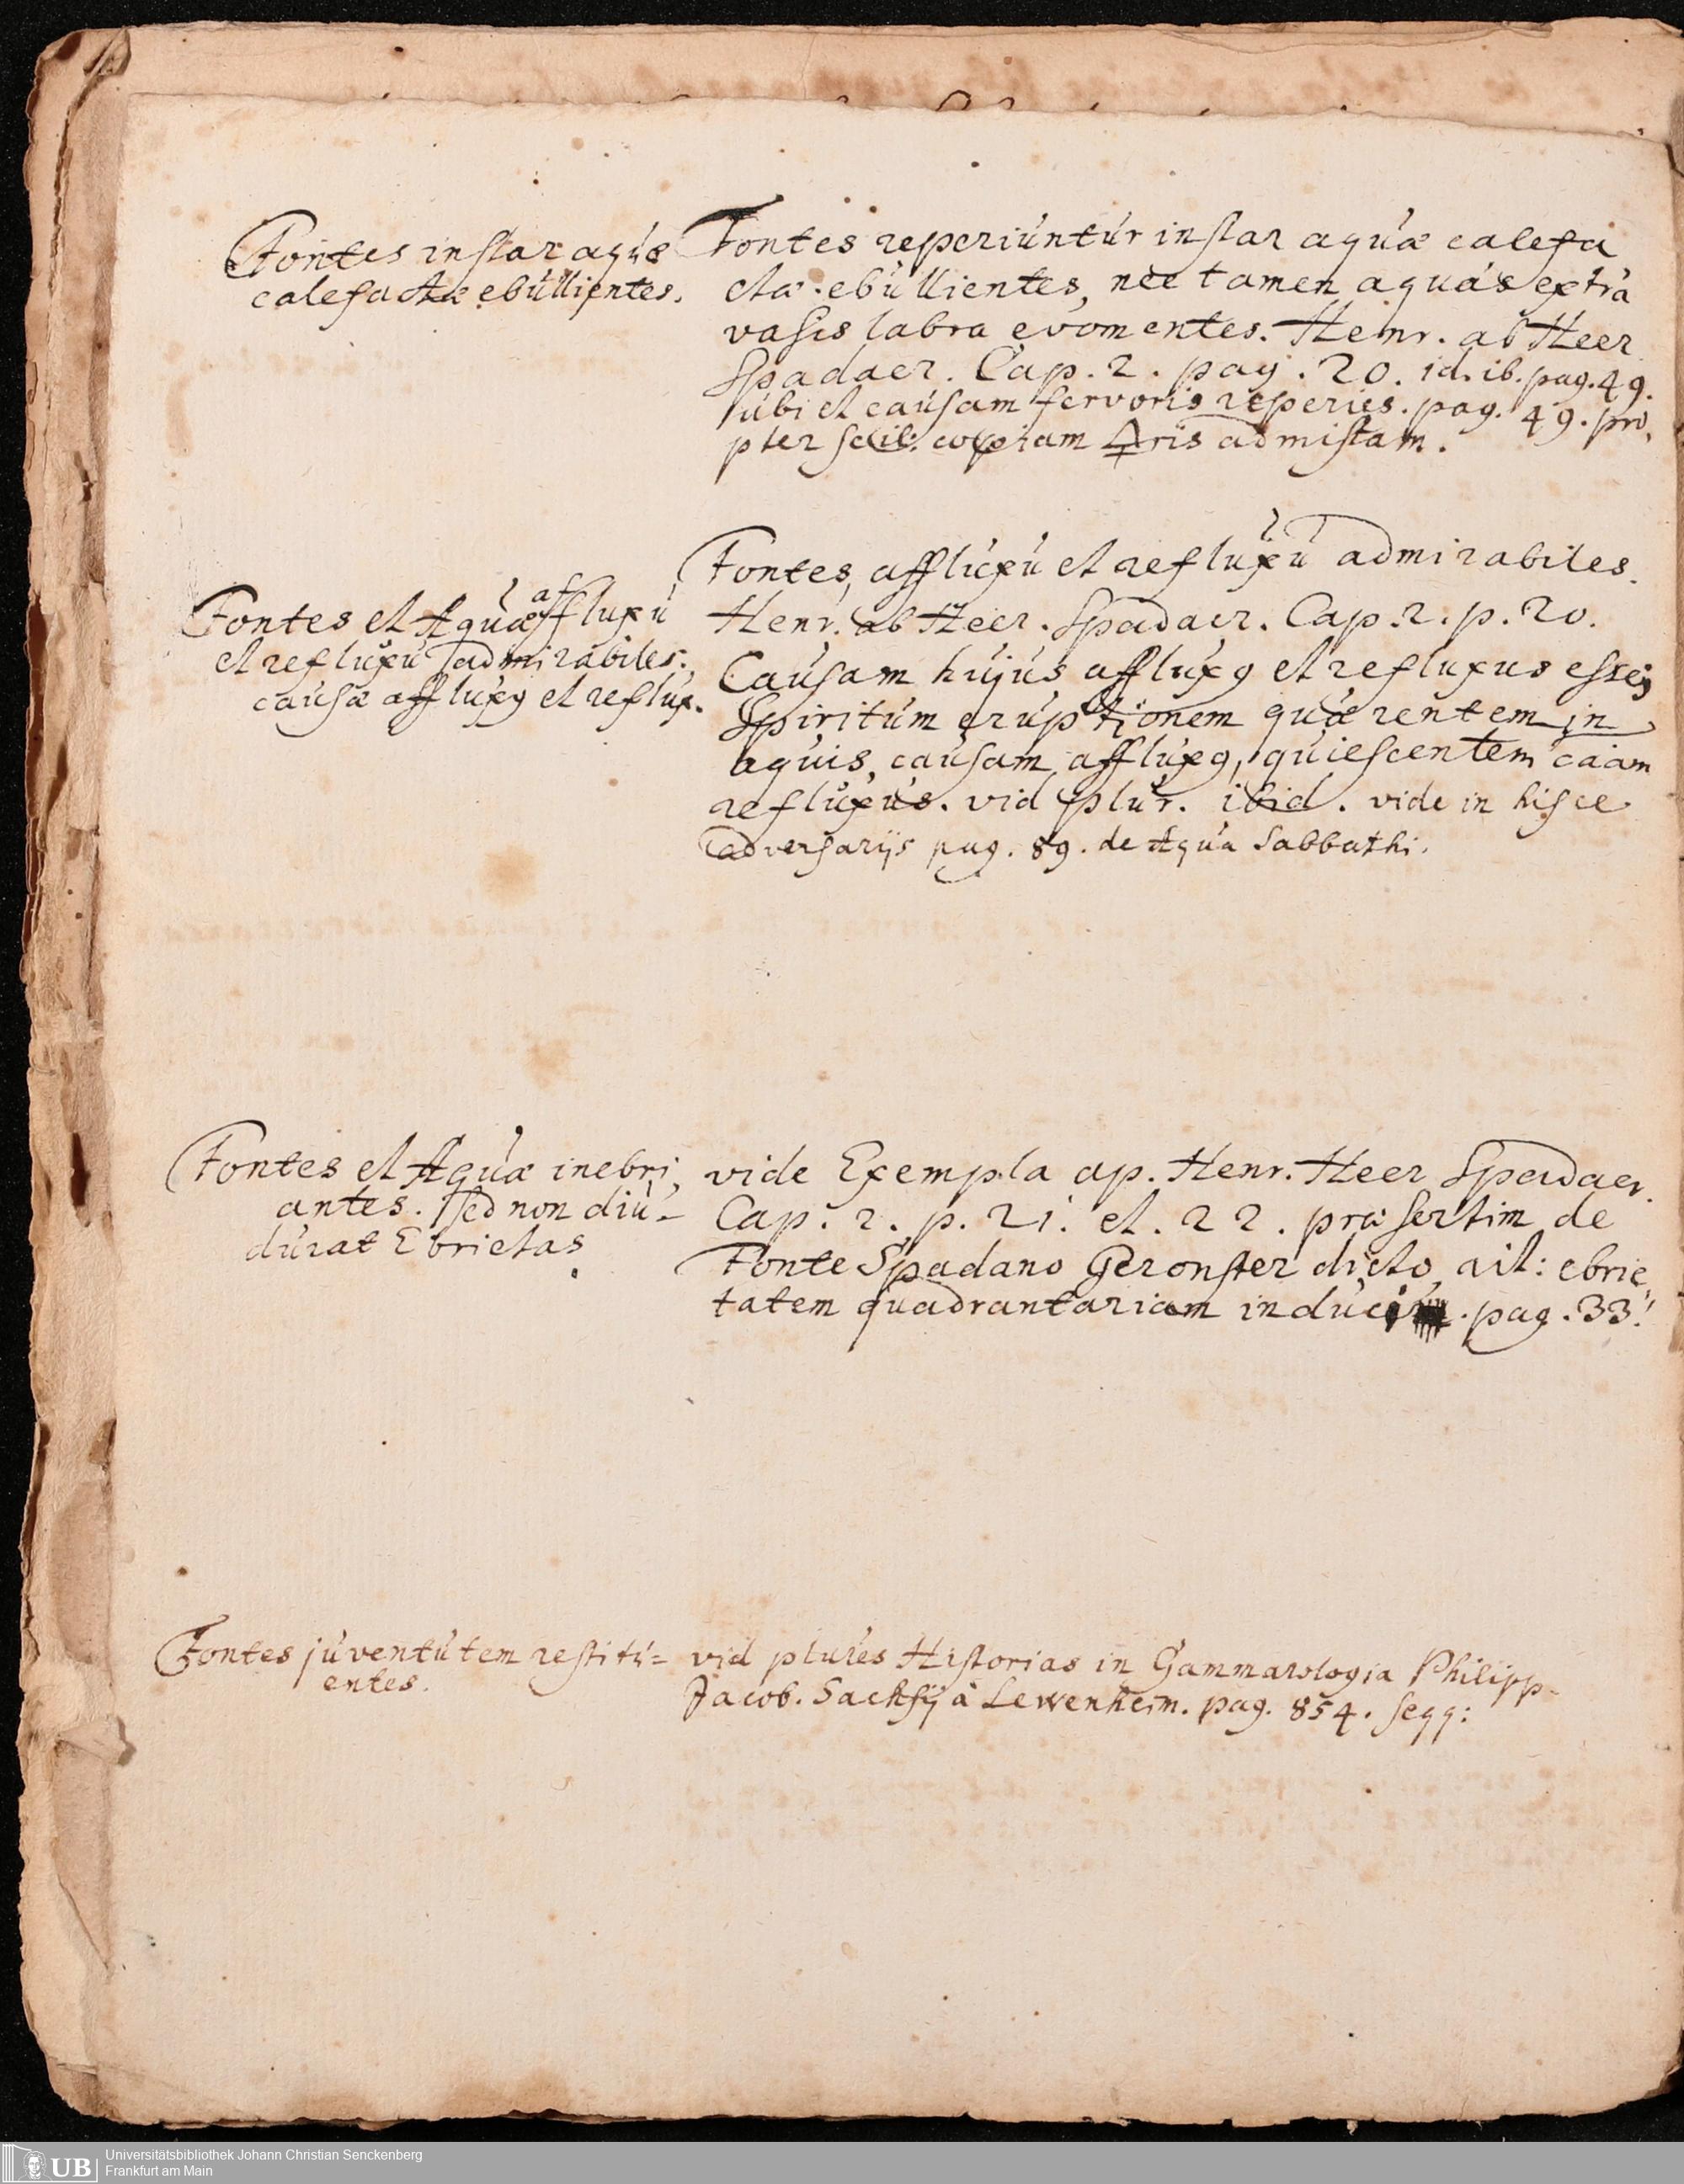 Fontes instar aquæ
calefactæ ebullientes.
Fontes reperiuntur instar aquæ calefa
ctæ ebullientes, nec tamen aquas extra
vasis labra evomentes. Henr. ab Heer
Spadacr. Cap. 2. pag. 20. id. ib. pag. 49.
ubi et causam fervoris reperies. pag. 49. pro,
pter scil: copiam 🜍ris admistam.
Fontes et Aquæ affluxu
et refluxu admirabiles.
causæ affluxq et reflux.
Fontes, affluxu et refluxu admirabiles.
Henr. ab Heer. Spadacr. Cap. 2. p. 20.
Causam hujus affluxq et refluxus esse
Spiritum eruptionem quærentem in
aquis, causam affluxq, quiescentem
refluxus. vid plur. ibid. vide in hisce
adversarijs pag. 89. de Aqua Sabbathi.
Fontes et Aquæ inebri,
antes. sed non diu-
durat Ebrietas.
vide Exempla ap. Henr. Heer Spadacr.
Cap. 2. p. 21. et. 22. præsertim de
Fonte Spadano Geronster dicto, ait: ebrie,
tatem quadrantariam induci. pag. 33.
Fontes juventutem restitu=
entes.
vid plures Historias in Gammarologia Philipp-
Jacob. Sachsij à Lewenheim. pag. 854. seqq:
UB
Universitätsbibliothek Johann Christian Senckenberg
Frankfurt am Main